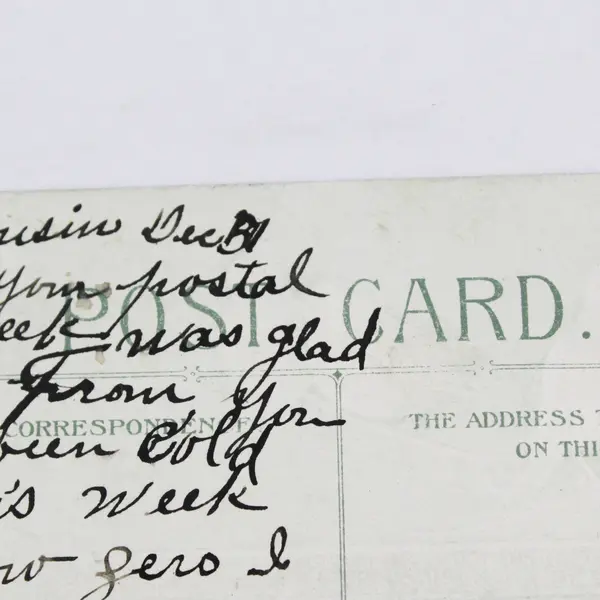 usin Dec 31
your postal
POST CARD.
eek was glad
from you
CORRESPONDENCE
THE ADDRESS
ON THI
been cold
s week
ow zero I